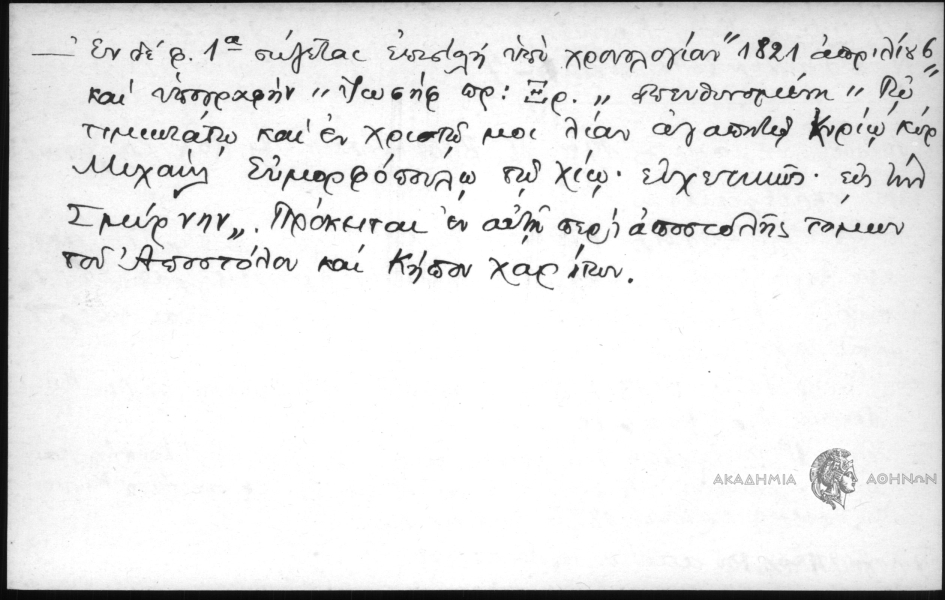 — Ἐν δὲ φ. 1α σώζεται ἐπιστολὴ ὑπὸ χρονολογίαν "1821 ἀπριλίου 6
καὶ ὑπογραφὴν "Ἰωσὴφ πρ: Ξρ. „ ἀπευθυνομένη "Τῷ
τιμιωτάτῳ καὶ ἐν χριστῷ μοι λίαν ἀγαπητῷ Κυρίῳ κὺρ
Μιχαὴλ Εὐμορφόπουλῳ τῷ χίῳ· εὐχετικῶς· εἰς τὴν
Σμύρνην„. Πρόκειται ἐν αὐτῇ περὶ ἀποστολῆς τόμων
τοῦ Ἀποστόλου καὶ Κήπου χαρίτων.
ΑΚΑΔΗΜΙΑ ΑΘΗΝΩΝ